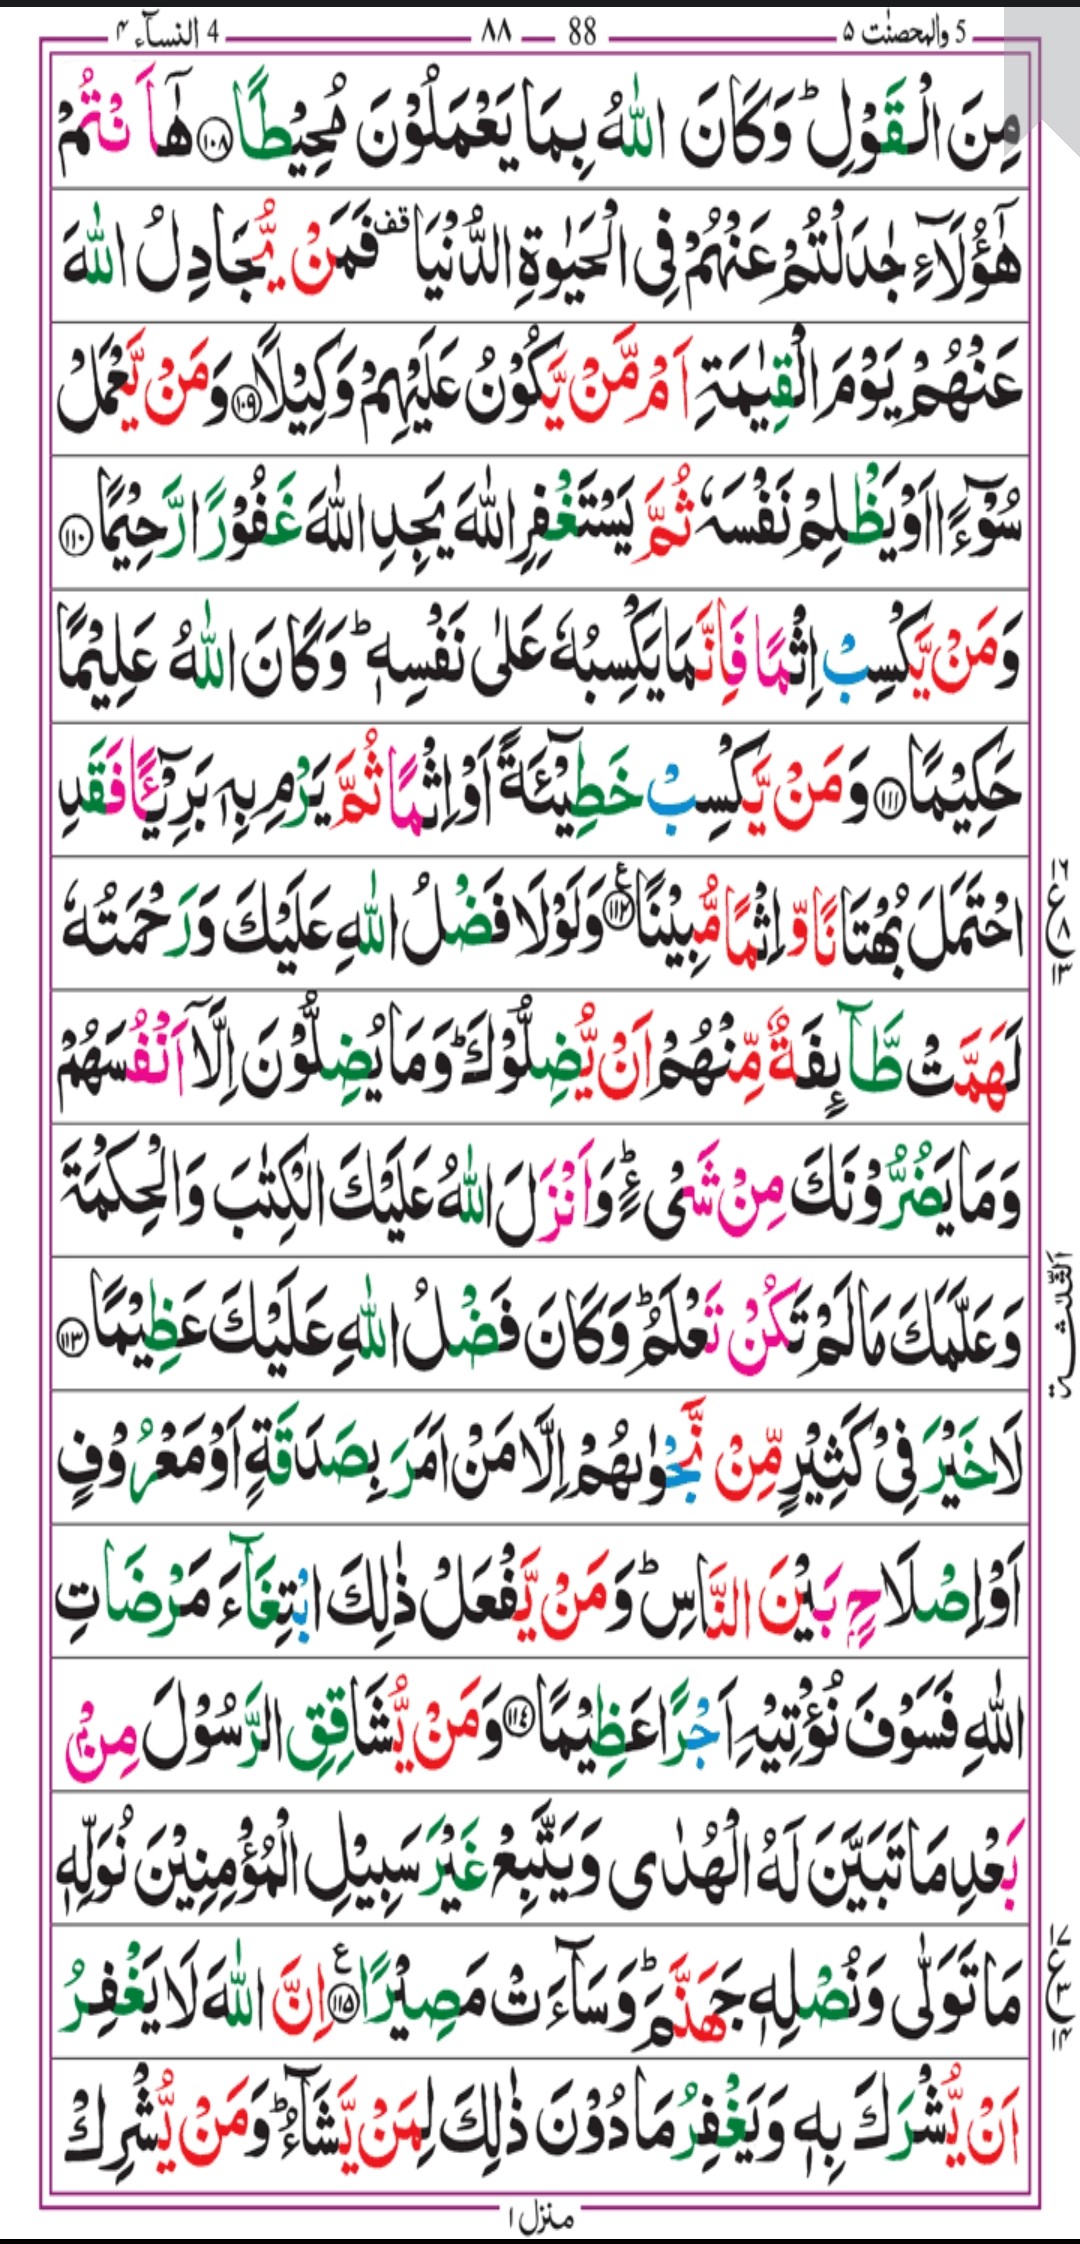 5 والمحصنٰت ۵ 88 ۸۸ 4 النسآء ۴
مِنَ الْقَوْلِ ؕ وَكَانَ اللّٰهُ بِمَا يَعْمَلُوْنَ مُحِيْطًا ۝۱۰۸ هٰۤاَنْتُمْ
هٰۤؤُلَآءِ جٰدَلْتُمْ عَنْهُمْ فِى الْحَيٰوةِ الدُّنْيَا قف فَمَنْ يُّجَادِلُ اللّٰهَ
عَنْهُمْ يَوْمَ الْقِيٰمَةِ اَمْ مَّنْ يَّكُوْنُ عَلَيْهِمْ وَكِيْلًا ۝۱۰۹ وَمَنْ يَّعْمَلْ
سُوْٓءًا اَوْ يَظْلِمْ نَفْسَهٗ ثُمَّ يَسْتَغْفِرِ اللّٰهَ يَجِدِ اللّٰهَ غَفُوْرًا رَّحِيْمًا ۝۱۱۰
وَمَنْ يَّكْسِبْ اِثْمًا فَاِنَّمَا يَكْسِبُهٗ عَلٰى نَفْسِهٖ ؕ وَكَانَ اللّٰهُ عَلِيْمًا
حَكِيْمًا ۝۱۱۱ وَمَنْ يَّكْسِبْ خَطِيْٓئَةً اَوْ اِثْمًا ثُمَّ يَرْمِ بِهٖ بَرِيْٓئًا فَقَدِ
احْتَمَلَ بُهْتَانًا وَّاِثْمًا مُّبِيْنًا ۝۱۱۲ ع وَلَوْلَا فَضْلُ اللّٰهِ عَلَيْكَ وَرَحْمَتُهٗ
۱۶ ع ۸ ۱۳
لَهَمَّتْ طَّآئِفَةٌ مِّنْهُمْ اَنْ يُّضِلُّوْكَ ؕ وَمَا يُضِلُّوْنَ اِلَّاۤ اَنْفُسَهُمْ
وَمَا يَضُرُّوْنَكَ مِنْ شَىْءٍ ؕ وَاَنْزَلَ اللّٰهُ عَلَيْكَ الْكِتٰبَ وَالْحِكْمَةَ
وَعَلَّمَكَ مَا لَمْ تَكُنْ تَعْلَمُ ؕ وَكَانَ فَضْلُ اللّٰهِ عَلَيْكَ عَظِيْمًا ۝۱۱۳
الثلٰثة
لَا خَيْرَ فِىْ كَثِيْرٍ مِّنْ نَّجْوٰىهُمْ اِلَّا مَنْ اَمَرَ بِصَدَقَةٍ اَوْ مَعْرُوْفٍ
اَوْ اِصْلَاحٍۭ بَيْنَ النَّاسِ ؕ وَمَنْ يَّفْعَلْ ذٰلِكَ ابْتِغَآءَ مَرْضَاتِ
اللّٰهِ فَسَوْفَ نُؤْتِيْهِ اَجْرًا عَظِيْمًا ۝۱۱۴ وَمَنْ يُّشَاقِقِ الرَّسُوْلَ مِنْۢ
بَعْدِ مَا تَبَيَّنَ لَهُ الْهُدٰى وَيَتَّبِعْ غَيْرَ سَبِيْلِ الْمُؤْمِنِيْنَ نُوَلِّهٖ
مَا تَوَلّٰى وَنُصْلِهٖ جَهَنَّمَ ؕ وَسَآءَتْ مَصِيْرًا ۝۱۱۵ ع اِنَّ اللّٰهَ لَا يَغْفِرُ
۱۷ ع ۳ ۱۴
اَنْ يُّشْرَكَ بِهٖ وَيَغْفِرُ مَا دُوْنَ ذٰلِكَ لِمَنْ يَّشَآءُ ؕ وَمَنْ يُّشْرِكْ
منزل ۱